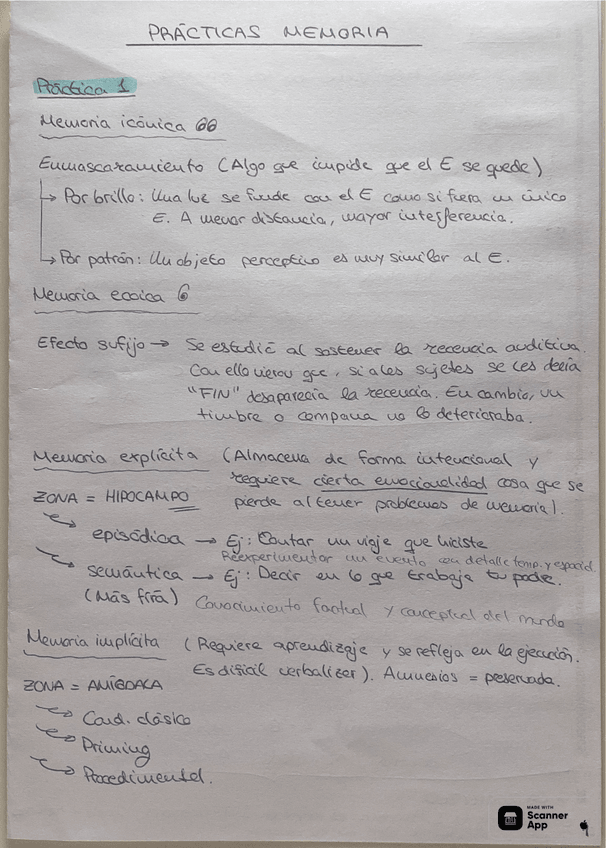 PRÁCTICAS MEMORIA
Práctica 1
Memoria icónica
Enmascaramiento (Algo que impide que el E se quede)
→ Por brillo: Una luz se funde con el E como si fuera un único
E. A menor distancia, mayor interferencia.
→ Por patrón: Un objeto perceptivo es muy similar al E.
Memoria ecoica
Efecto sufijo → Se estudió al sostener la recencia auditiva.
Con ello vieron que, si a los sujetos se les decía
"FIN" desaparecía la recencia. En cambio, un
timbre o campana no lo deterioraba.
Memoria explícita (Almacena de forma intencional y
requiere cierta emocionalidad cosa que se
pierde al tener problemas de memoria).
ZONA = HIPOCAMPO
episódica → Ej: Contar un viaje que hiciste
Reexperimentar un evento con detalle temp. y espacial
semántica → Ej: Decir en lo que trabaja tu padre.
(Más fría) Conocimiento factual y conceptual del mundo
Memoria implícita (Requiere aprendizaje y se refleja en la ejecución.
Es difícil verbalizar). Amnesias = preservada.
ZONA = AMÍGDALA
Cond. clásico
Priming
Procedimental.
MADE WITH
Scanner
App